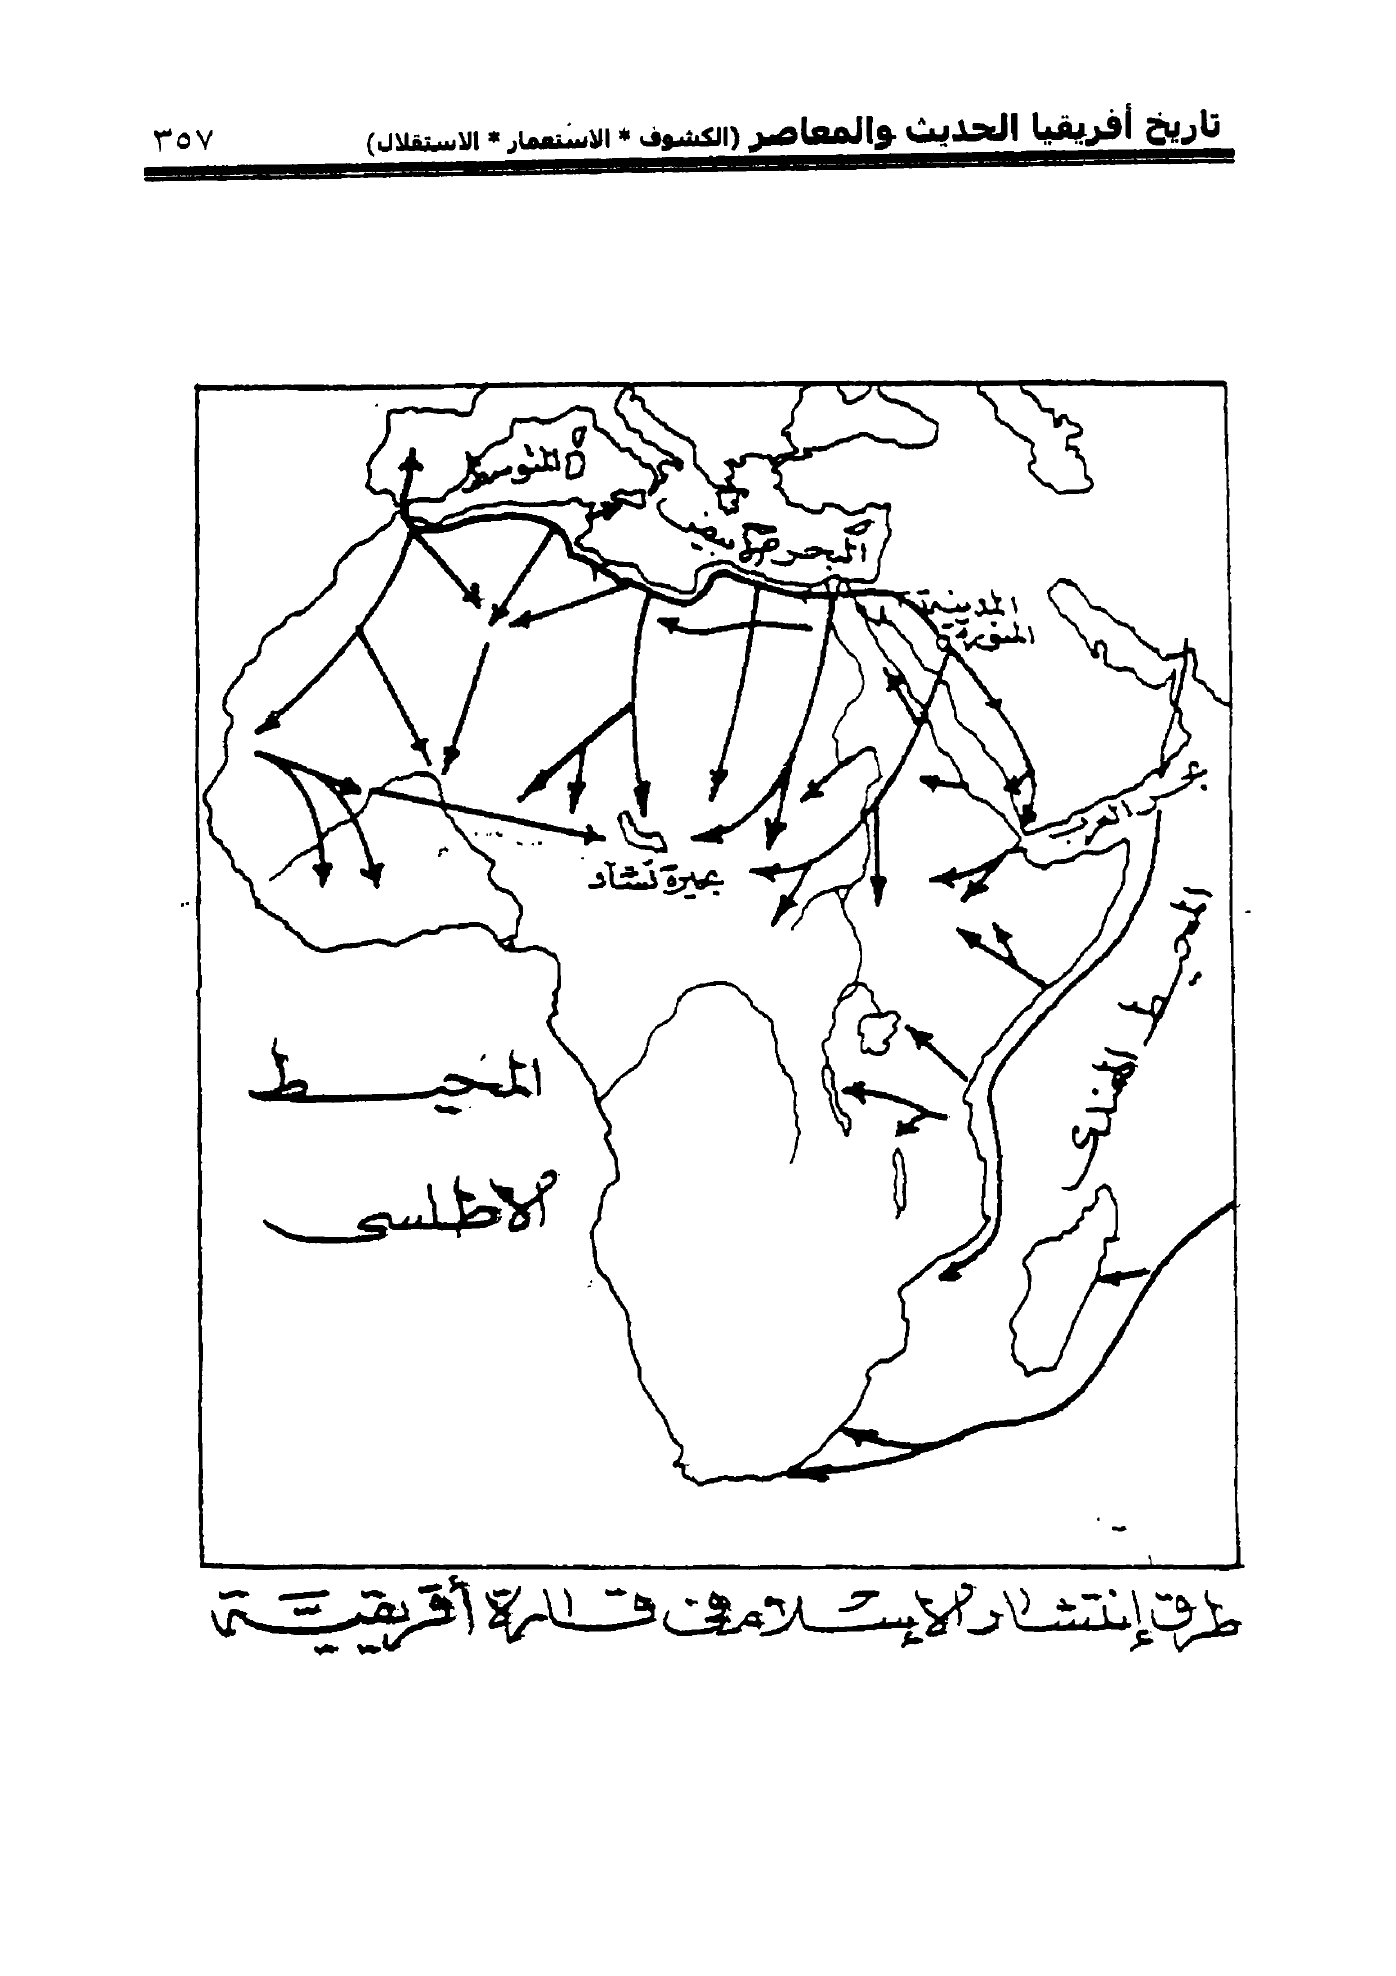 تاريخ أفريقيا الحديث والمعاصر (الكشوف * الاستعمار * الاستقلال) ٣٥٧
المتوسط
البحر
المدينة
المنورة
بحر العرب
بحيرة تشاد
المحيط الهندى
المحيط
الأطلسى
طرق إنتشار الإسلام فى قارة أفريقية